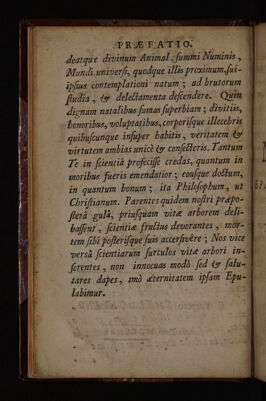 PRÆFATIO.
deatque divinum Animal, summi Numinis,
Mundi universi, quodque illis proximum, sui-
ipsius contemplationi natum; ad brutorum
studia, & delectamenta descendere. Quin
dignam natalibus sumas superbiam; divitiis,
honoribus, voluptatibus, corporisque illecebris
quibuscunque insuper habitis, veritatem &
virtutem ambias unicè & consecteris. Tantum
Te in scientiâ profecisse credas, quantum in
moribus fueris emendatior; eousque doctum,
in quantum bonum; ita Philosophum, ut
Christianum. Parentes quidem nostri præpo-
sterâ gulâ, priusquam vitæ arborem deli-
bassent, scientiæ fructus devorantes, mor-
tem sibi posterisque suis accersivêre; Nos vice
versâ scientiarum surculos vitæ arbori in-
serentes, non innocuas modò sed & salu-
tares dapes, imò æternitatem ipsam Epu-
labimur.